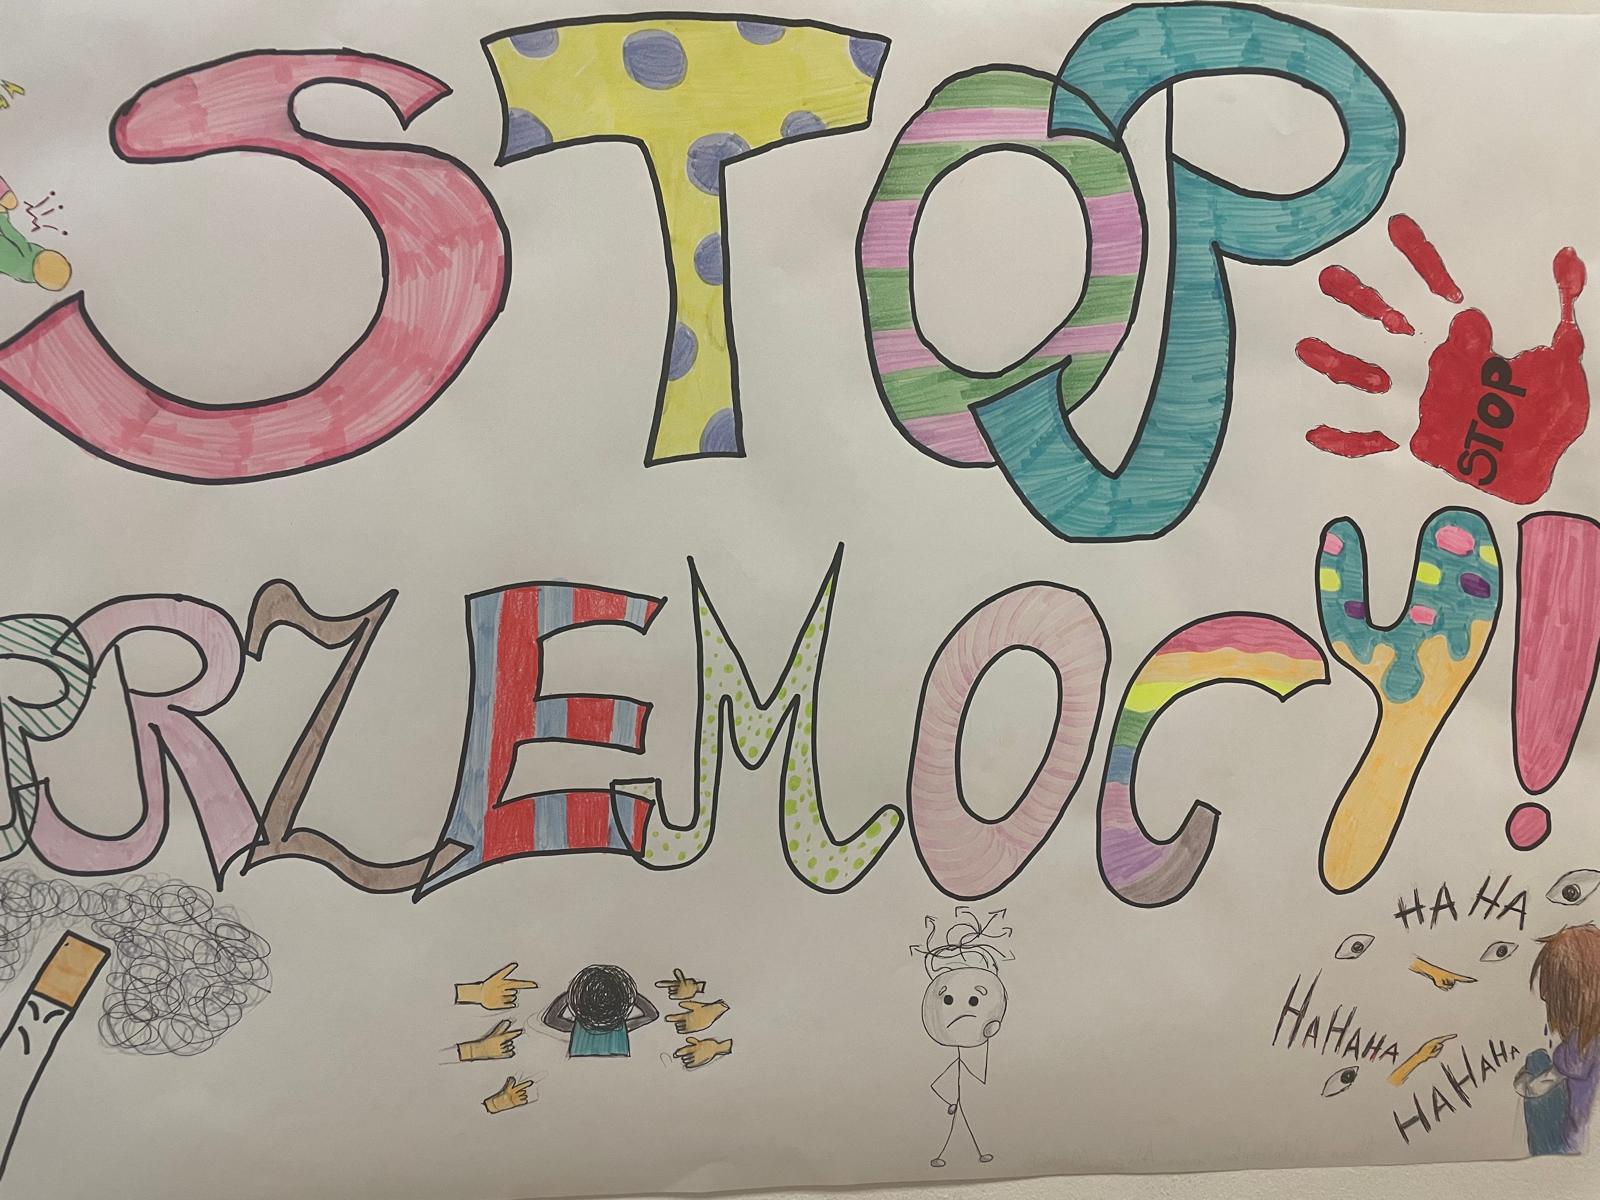 STOP
STOP
PRZEMOCY!
HA HA
HAHAHA
HAHAHAHA